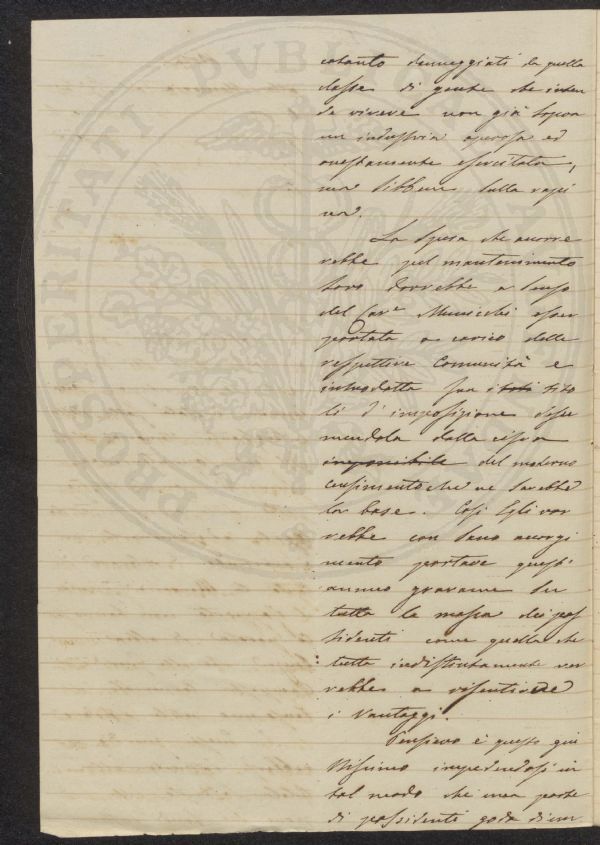 PROSPERITATI PUBLICAE
cotanto danneggiati da quella
classe di gente che inten
de vivere non già sopra
un industria operosa ed
onestamente esercitata,
ma sibbene sulla rapi
na.
La spesa che occorre
rebbe pel mantenimento
loro dovrebbe a senso
del Cav.e esser
portata a carico delle
respettive Comunità e
introdotta fra i toli tito
li d'imposizione desu
mendola dalla cifra
imponibile del moderno
censimento che ne sarebbe
la base. Così Egli vor
rebbe con savio accorgi
mento portare quest'
annuo gravame su
tutta la massa dei pos
sidenti come quella che
tutta indistintamente ver
rebbe a risentirne
i vantaggi.
Pensiero è questo giu
stissimo impedendosi in
tal modo che una parte
di possidenti goda di un